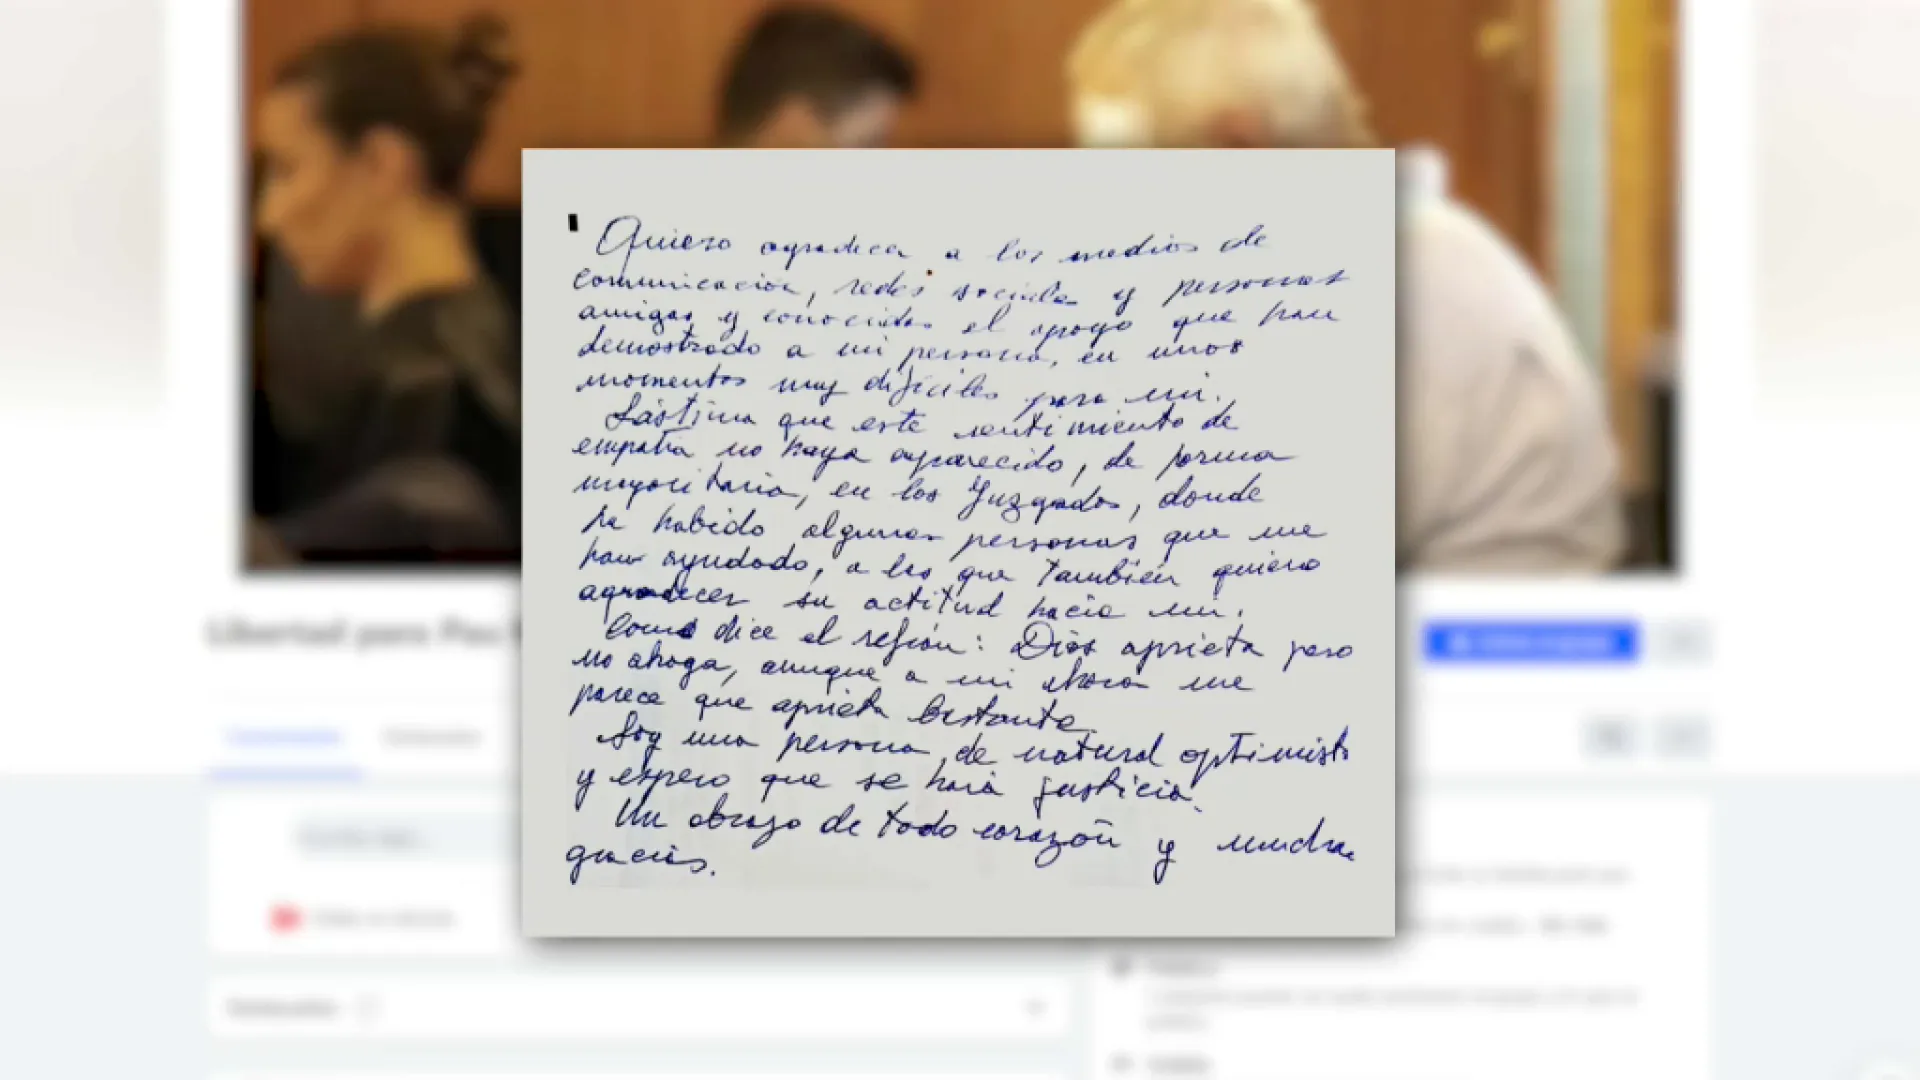 Quiero agradecer a los medios de
comunicación, redes sociales y personas
amigas y conocidas el apoyo que han
demostrado a mi persona, en unos
momentos muy difíciles para mi.
Lástima que este sentimiento de
empatía no haya aparecido, de forma
mayoritaria, en los Juzgados, donde
ha habido algunas personas que me
han ayudado, a las que también quiero
agradecer su actitud hacia mi.
Como dice el refrán: Dios aprieta pero
no ahoga, aunque a mi ahora me
parece que aprieta bastante.
Soy una persona de natural optimista
y espero que se hará justicia.
Un abrazo de todo corazón y muchas
gracias.
Libertad para